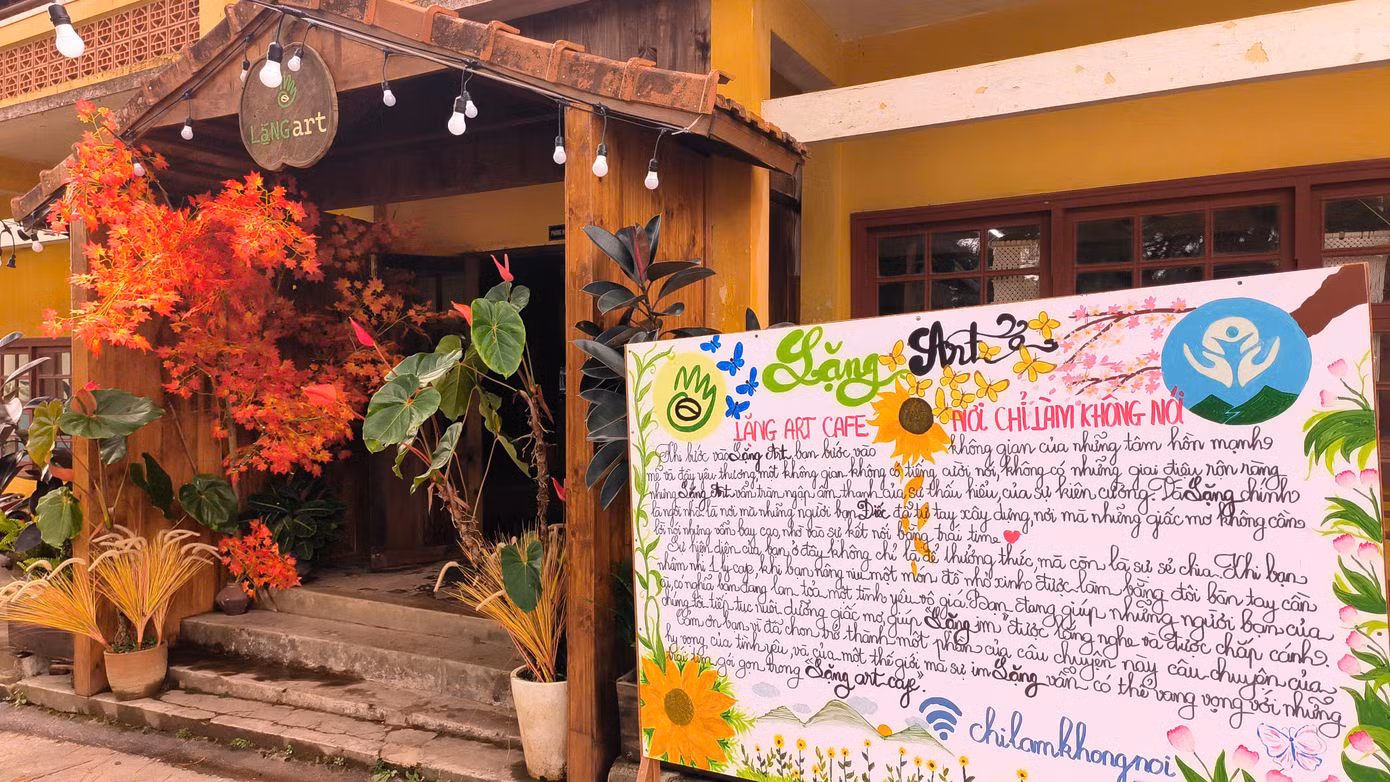 LặNG art
Lặng Art
LẶNG ART CAFE
NƠI CHỈ LÀM KHÔNG NÓI
Khi bước vào Lặng Art, bạn bước vào không gian của những tâm hồn mạnh
mẽ và đầy yêu thương, một không gian không có tiếng cười, nói, không có những giai điệu rộn ràng
nhưng Lặng Art vẫn tràn ngập âm thanh của sự thấu hiểu, của sự kiên cường. Và Lặng chính
là ngôi nhà, là nơi mà những người bạn Điếc đã tự tay xây dựng, nơi mà những giấc mơ không cần
lời nói nhưng vẫn bay cao, nhờ vào sự kết nối bằng trái tim
Sự hiện diện của bạn ở đây không chỉ là để thưởng thức, mà còn là sự sẻ chia. Khi bạn
nhâm nhi 1 ly cafe, khi bạn nâng niu một món đồ nhỏ xinh được làm bằng đôi bàn tay cần
cù, có nghĩa bạn đang lan tỏa một tình yêu vô giá. Bạn đang giúp những người bạn của
chúng tôi tiếp tục nuôi dưỡng giấc mơ, giúp "Lặng im" được lắng nghe và được chắp cánh.
Cảm ơn bạn vì đã chọn trở thành một phần của câu chuyện này câu chuyện của
hy vọng của tình yêu, và của một thế giới mà sự im Lặng vẫn có thể vang vọng với những
gói gọn trong "Lặng art cafe".
chilamkhongnoi